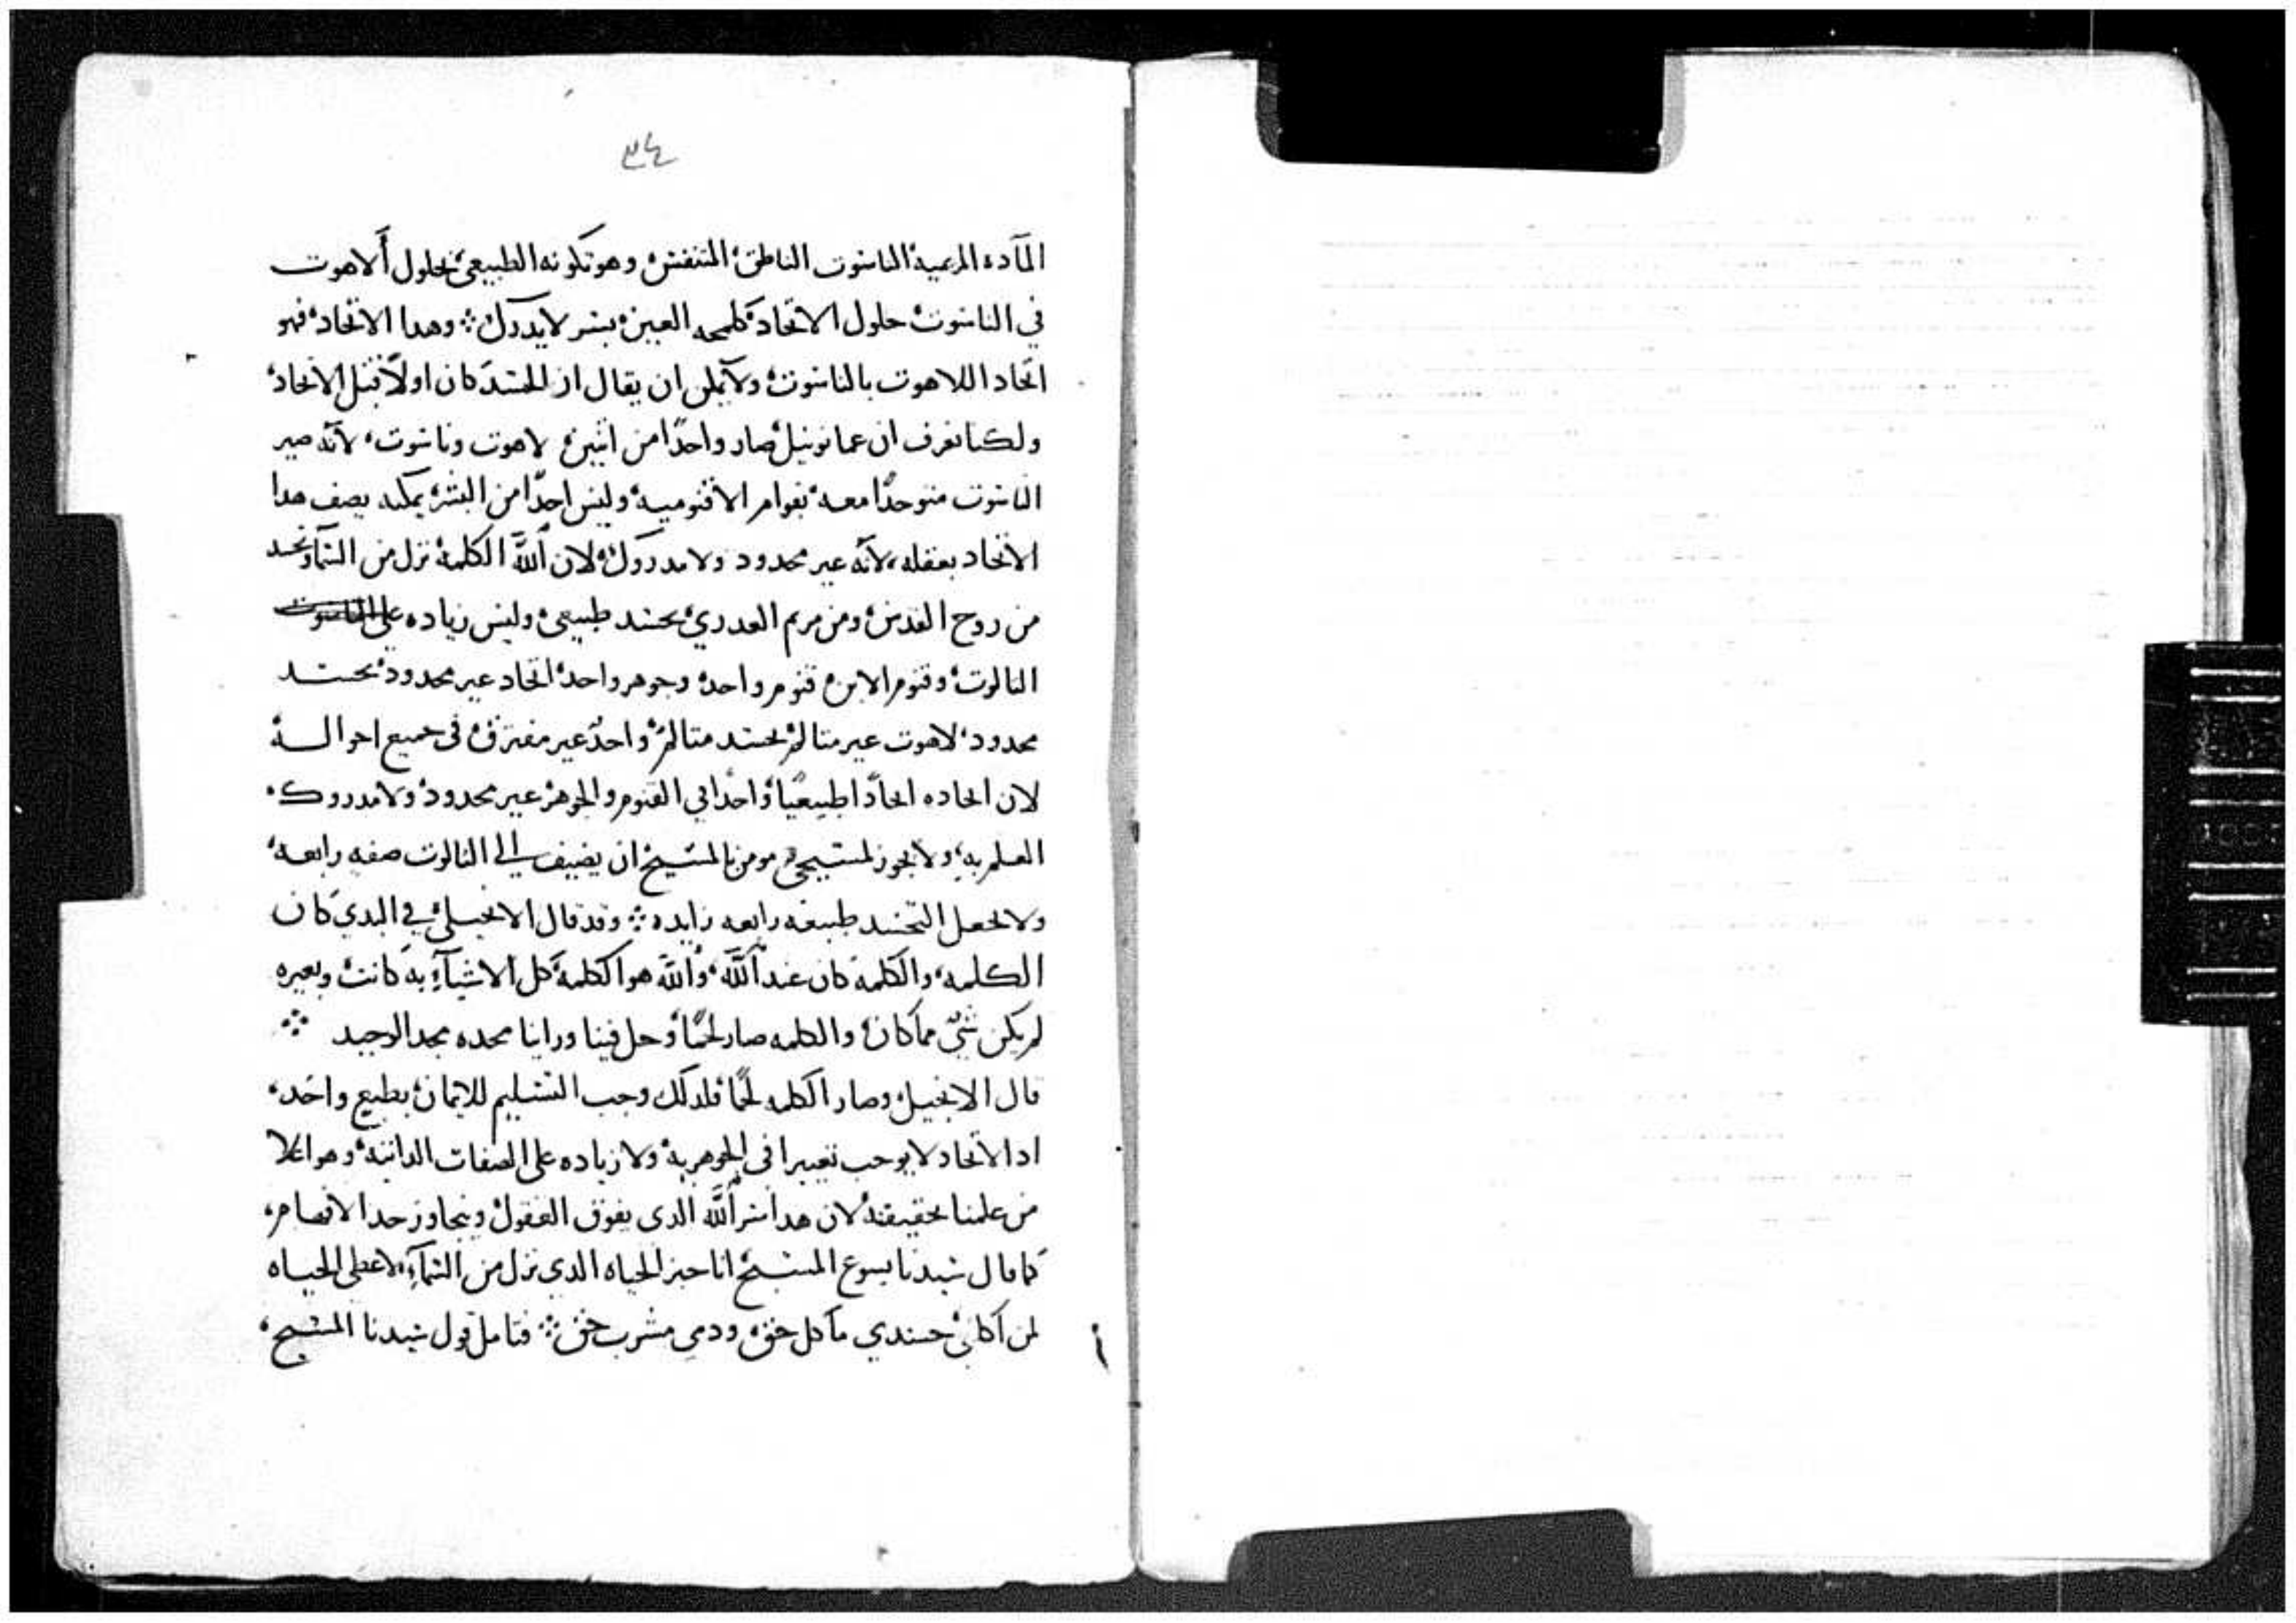 ٣٤
المآده المرعيه الناسوت الناطق المتنفس وهو تكونه الطبيعي بحلول ألاهوت
في الناسوت حلول الاتحاد كلمحه العين بسر لايدرك ܀ وهدا الاتحاد فهو
اتحاد اللاهوت بالناسوت ولا يمكن ان يقال ان الجسد كان اولاً قبل الاتحاد
ولكنا نعرف ان عمانوئيل صار واحدًا من اثنين لاهوت وناسوت، لانه صير
الناسوت متوحدًا معه بقوام الاقنوميه وليس احدًا من البشر يمكنه يصف هدا
الاتحاد بعقله، لانه غير محدود ولا مدروك لان ألله الكلمة نزل من السمآ وتجسد
من روح القدس ومن مريم العدري بجسد طبيعي وليس زياده على الناسوت
الثالوت وقنوم الابن قنوم واحد وجوهر واحد اتحاد غير محدود بجسد
محدود، لاهوت غير متالم بجسد متالم واحدٌ غير مفترق في جميع احواله
لان اتحاده اتحادًا طبيعيًا واحدًا في القنوم والجوهر غير محدود ولا مدروك.
العلم به، ولا يجوز لمسيحي مومن بالمسيح ان يضيف الى الثالوت صفه رابعه،
ولا يجعل التجسد طبيعه رابعه زايده ܀ وقد قال الانجيلي في البدي كان
الكلمه، والكلمه كان عند ألله، وألله هو الكلمة كل الاشيآء به كانت وبغيره
لم يكن شي مما كان والكلمه صار لحمًا وحل فينا وراينا مجده مجد الوحيد ܀
قال الانجيل وصار الكلمه لحمًا فلدلك وجب التسليم للايمان بطبع واحد،
اد الاتحاد لا يوجب تغييرا في الجوهرية ولا زياده على الصفات الداتية وهو اعلا
من علمنا بحقيقته لان هدا سر ألله الدى يفوق العقول ويتجاوز حد الافهام،
كما قال سيدنا يسوع المسيح انا خبز الحياه الدي نزل من السمآء لاعطي الحياه
لمن آكلني جسدي مآكل حق ودمي مشرب حق ܀ فتامل قول سيدنا المسيح،